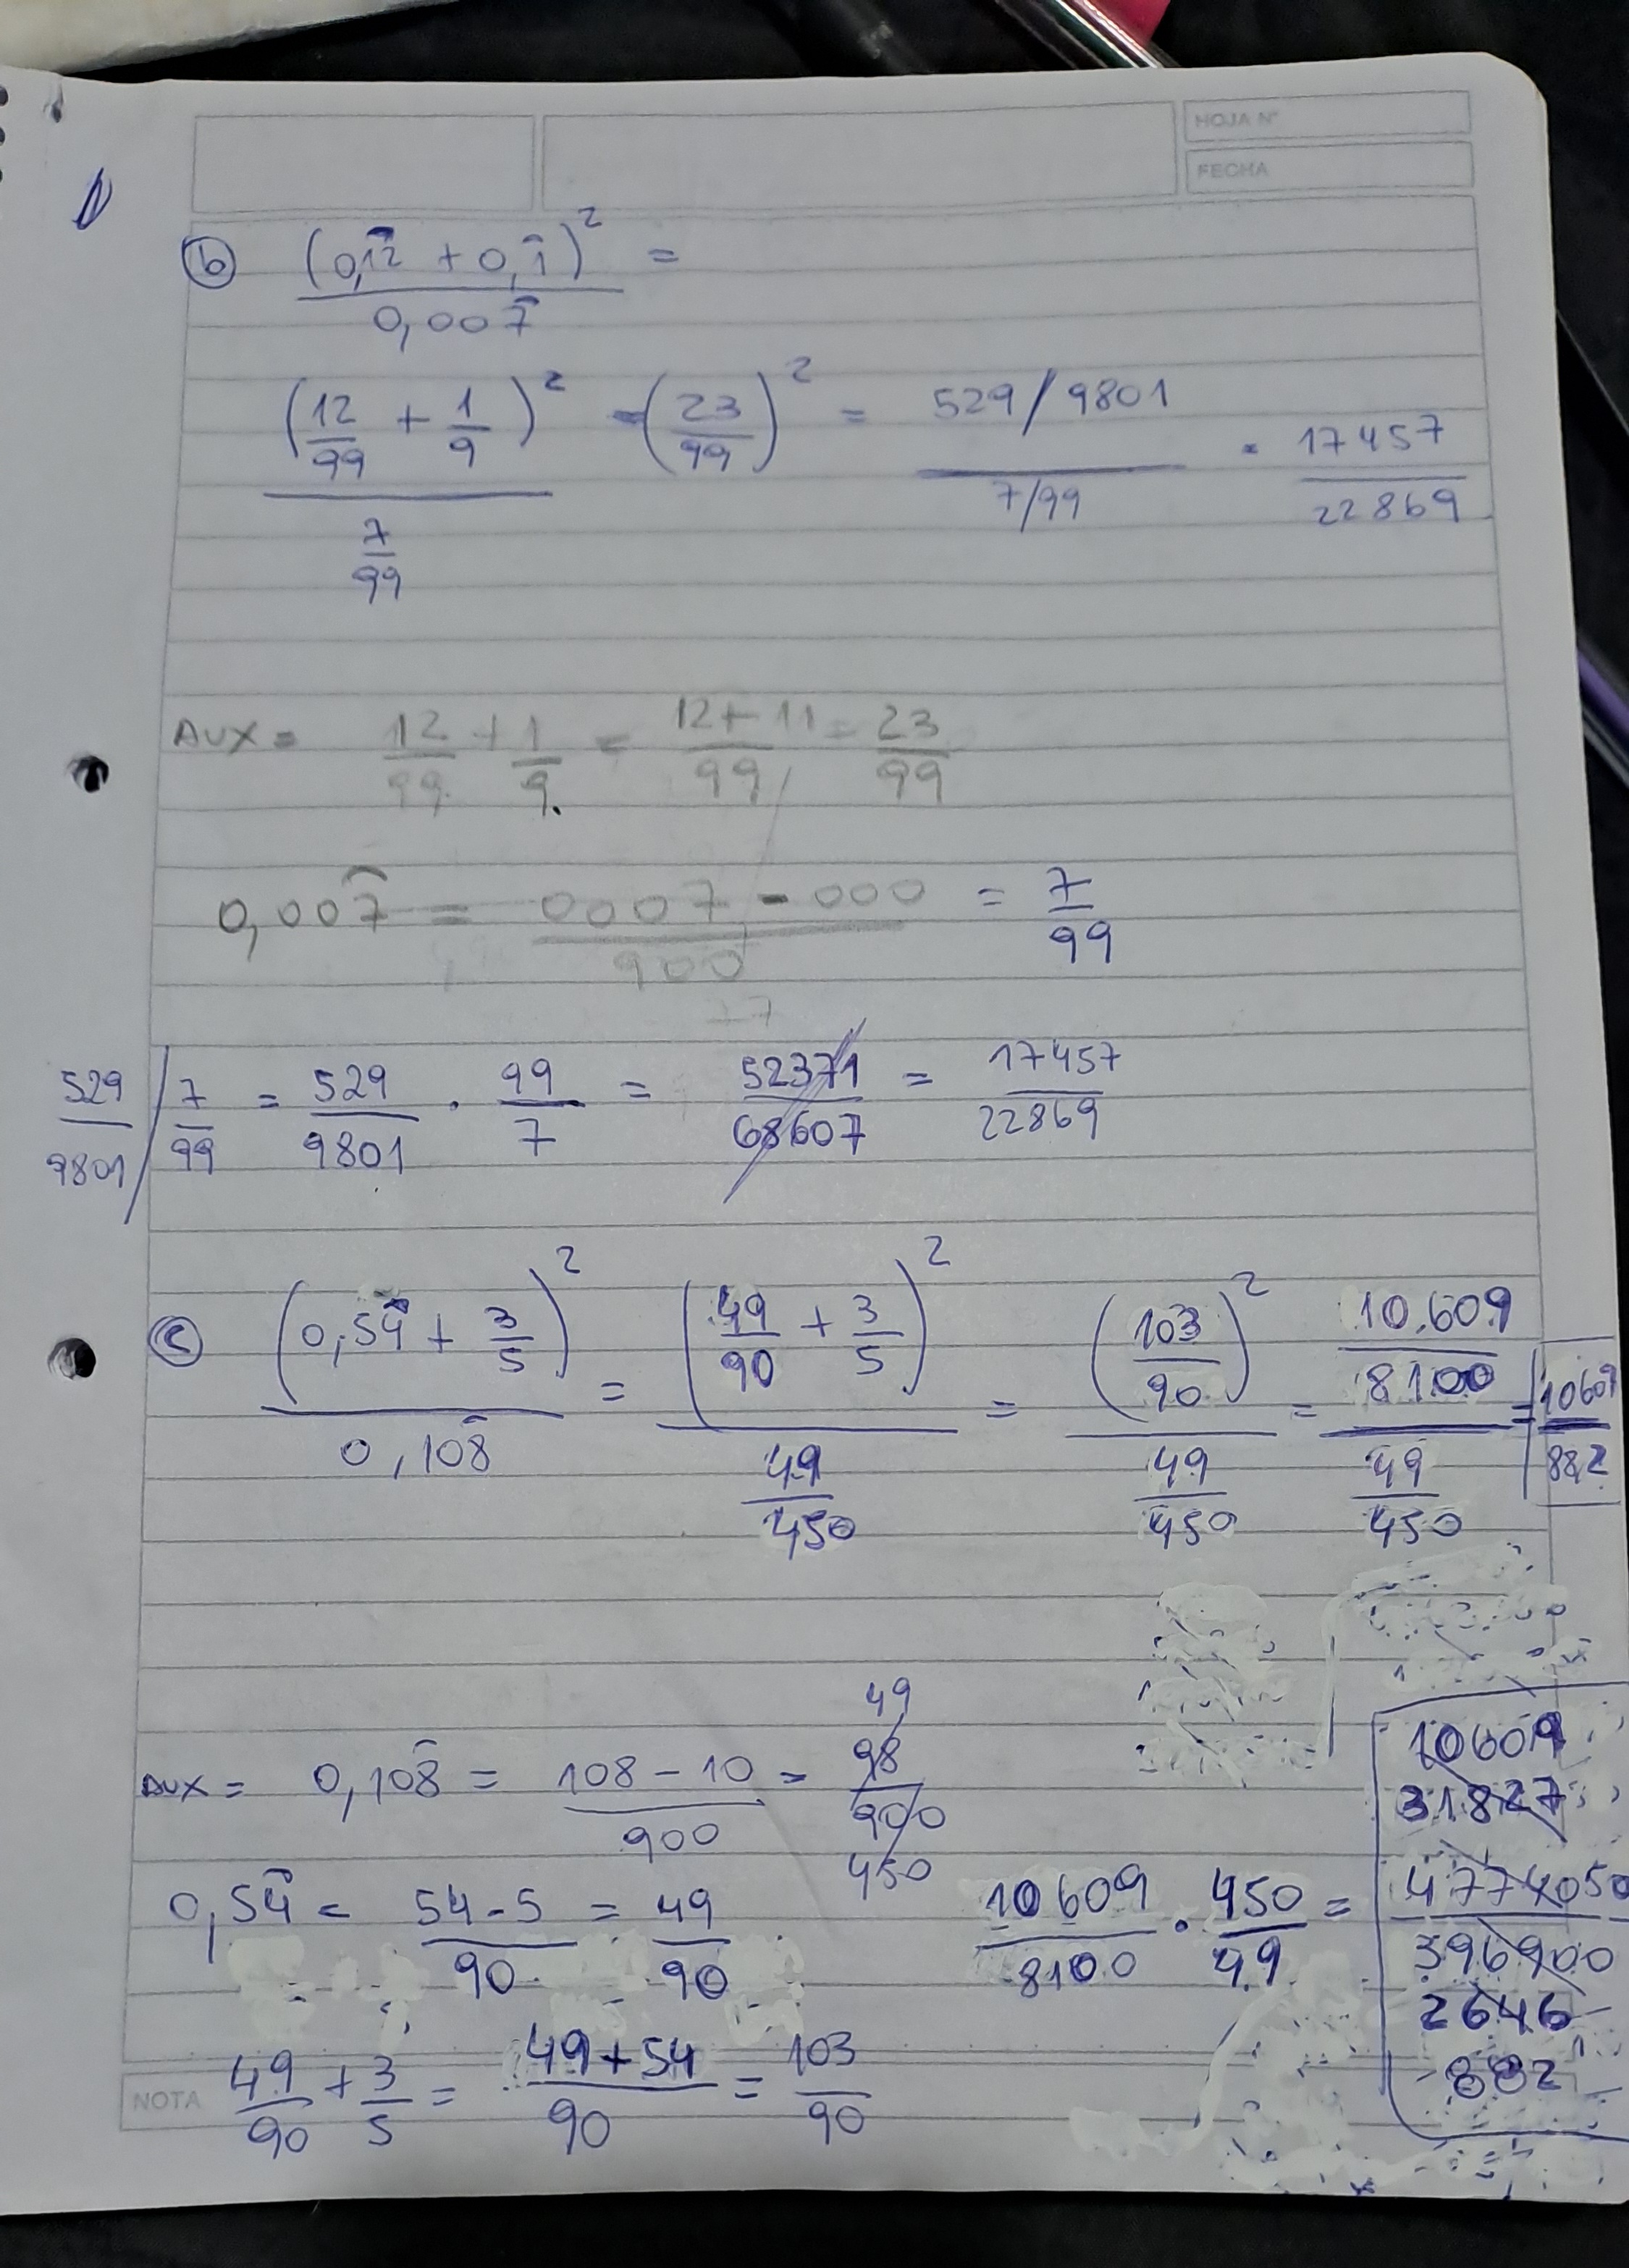 HOJA N°
FECHA
b (0,1͡2 + 0,1̂)² / 0,007̂ =
(12/99 + 1/9)² / (7/99) = (23/99)² = (529/9801) / (7/99) = 17457/22869
AUX = 12/99 + 1/9 = (12+11)/99 = 23/99
0,007̂ = (0007 - 000)/900 = 7/99
529/9801 / 7/99 = 529/9801 . 99/7 = 52371/68607 = 17457/22869
c (0,54̂ + 3/5)² / 0,108̂ = (49/90 + 3/5)² / (49/450) = (103/90)² / (49/450) = (10.609/8100) / (49/450) = 10609/882
AUX = 0,108̂ = (108 - 10)/900 = 98/900 49 450
0,54̂ = (54 - 5)/90 = 49/90
10609/8100 . 450/49 = 4774050/396900
10609
31827
2646
882
49/90 + 3/5 = (49+54)/90 = 103/90
NOTA